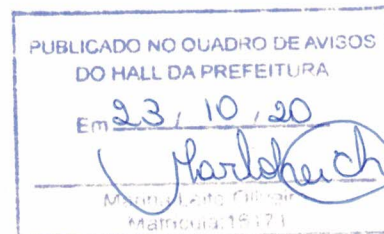 PUBLICADO NO QUADRO DE AVISOS
DO HALL DA PREFEITURA
Em 23, 10, 20
Matrícula: